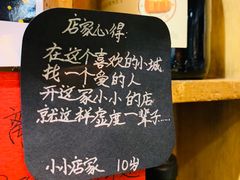 店家心得:
在这个喜欢的小城
找一个爱的人
开这家小小的店
就这样虚度一辈子....
小小店家 10岁